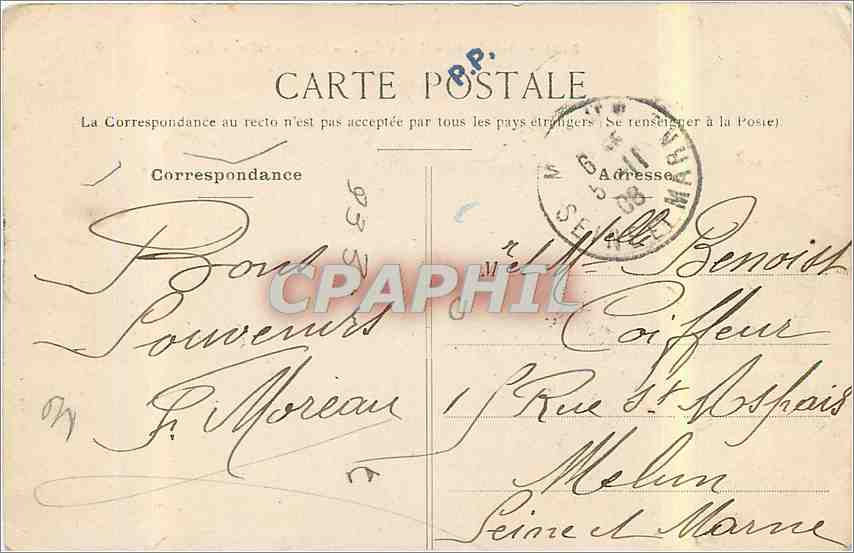 P.P.
CARTE POSTALE
La Correspondance au recto n'est pas acceptée par tous les pays étrangers (Se renseigner à la Poste)
Correspondance
Adresse
SEINE ET MARNE
6
5 11
08
933
Bons
Souvenirs
F. Moreau
Mr et Melle Benoist
Coiffeur
15 Rue St Aspais
Melun
Seine et Marne
CPAPHIL